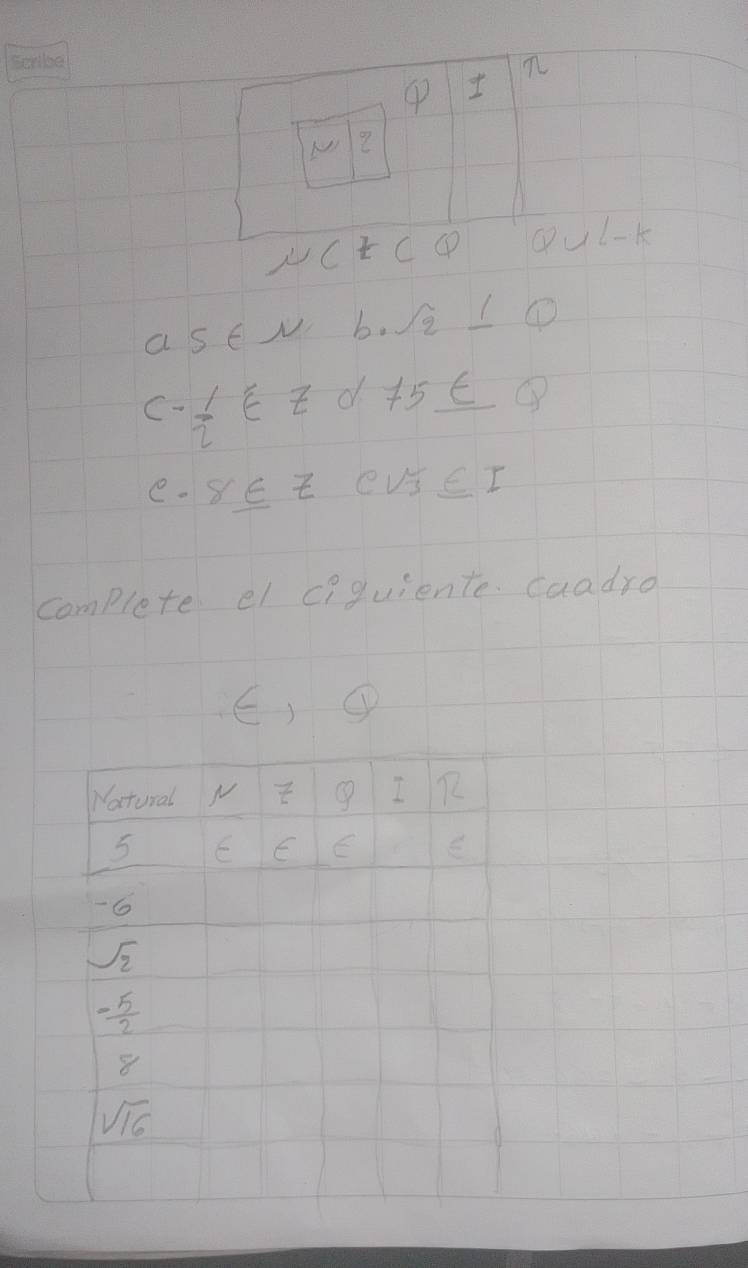 Scribe
Q I R
N Z
N C Z C Q Q U I - R
a 5 ∈ N b. √2 Q
c - 1/2 ∈ Z d 75 ∈ Q
e. 8 ∈ Z e √3 ∈ I
complete el ciguiente cuadro
∈, Q
Natural N Z Q I R
5 ∈ ∈ ∈ ∈
-6
√2
-5/2
8
√16